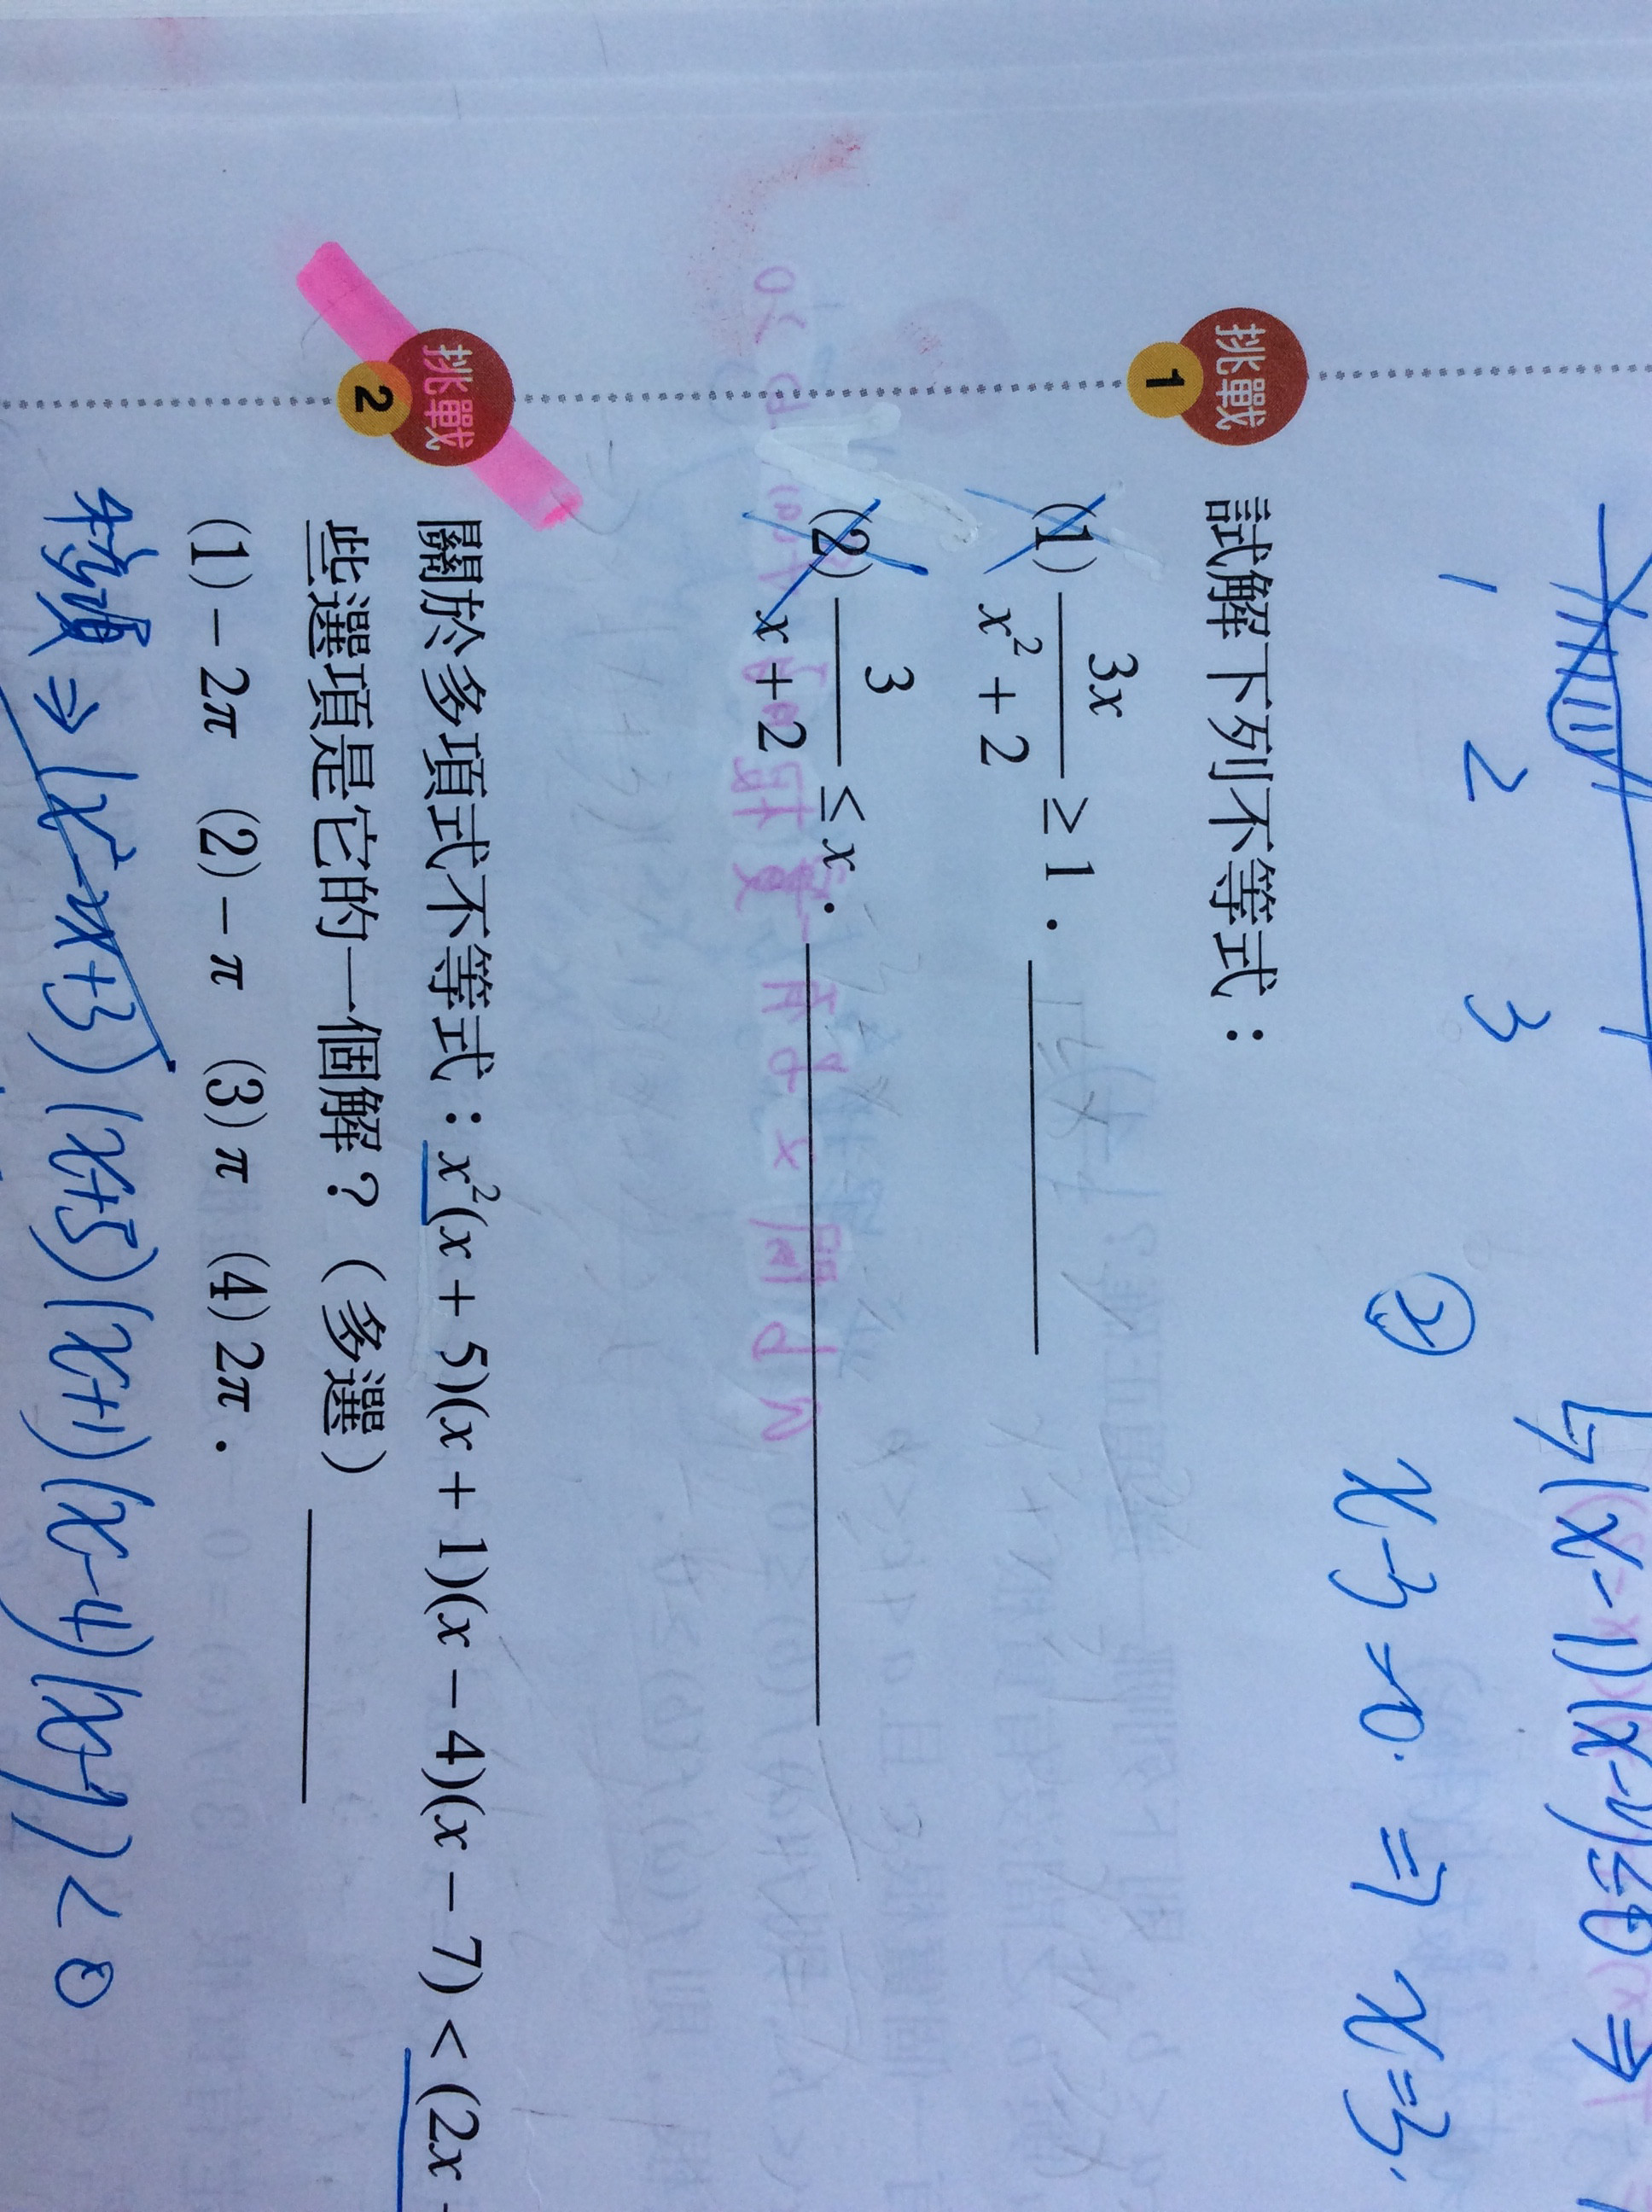 1 2 3
(x-1)(x-2)≤0 ⇒
② x-3=0. ⇒ x=3.
挑戰 1 試解下列不等式：
(1) 3x/(x²+2) ≥ 1．
(2) 3/(x+2) ≤ x．
挑戰 2 關於多項式不等式：x²(x+5)(x+1)(x-4)(x-7)<(2x-
些選項是它的一個解？（多選）
(1)-2π (2)-π (3)π (4)2π．
移項⇒(x²-2x+3)(x+5)(x+1)(x-4)(x-7)<0